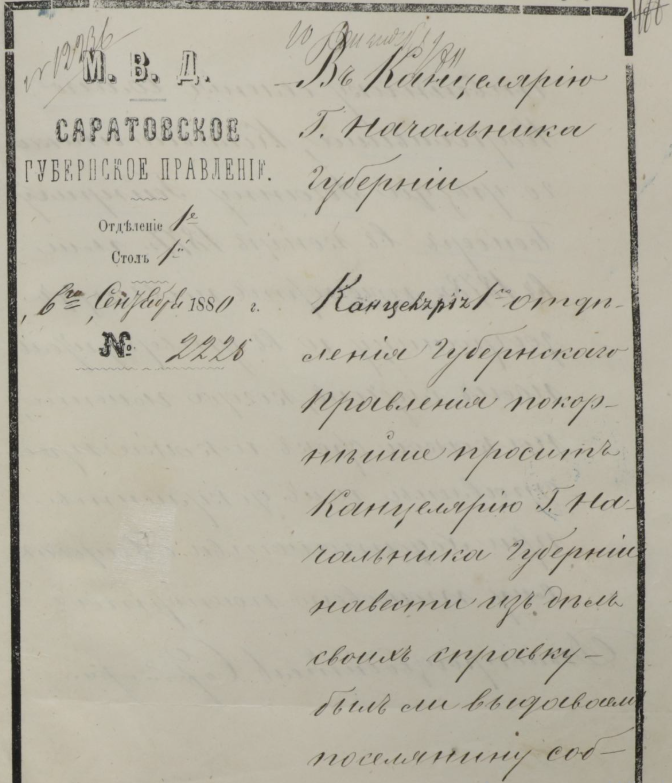 № 12236
М. В. Д.
САРАТОВСКОЕ
ГУБЕРНСКОЕ ПРАВЛЕНІЕ.
Отдѣленіе 1е
Столъ 1й
6го Сентября 1880 г.
№ 2228
Въ Канцелярію
Г. Начальника
Губерніи
Канцелярія 1го отдѣ-
ленія Губернскаго
Правленія покор-
нѣйше проситъ
Канцелярію Г. На-
чальника Губерніи
навести изъ дѣлъ
своихъ справку-
былъ ли выдаваемъ
поселянину соб-